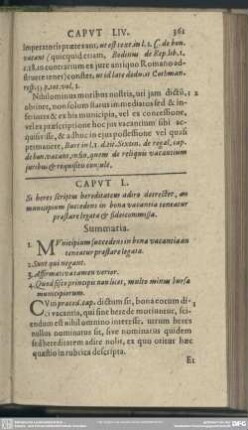 CAPVT LIV. 361
Imperatoris præteream, ut est text. in l. 1. C. de bon.
vacant. quicquid etiam, Bodinus de Rep. lib. 1.
c. 18. in contrarium ex jure antiquo Romano ad-
struere tenet) constet, ut id late deduxit Cothman.
resp. 5. p. tot. vol. 2.
Nihilominus moribus nostris, uti jam dictũ, 2
obtinet, non solum status immediatos sed & in-
feriores & ex his municipia, vel ex concessione,
vel ex præscriptione hoc jus vacantium sibi ac-
quisivisse, & adhuc in ejus possessione vel quasi
permanere,
de bon. vacant. ubi, quem de reliquis vacantium
juribus & requisitis consule.
CAPVT L.
Si heres scriptus hereditatem adire detrectet, an
municipium succedens in bona vacantia teneatur
præstare legata & fideicommissa.
Summaria.
1. MVnicipium succedens in bona vacantia an
teneatur præstare legata.
2. Sunt qui negant.
3. Affirmativa tamen verior.
4. Quod fisco principis non licet, multo minus bursæ
municipiorum.
CVm præced. cap. dictum sit, bona eorum di- 1
ci vacantia, qui sine herede moriuntur, sci-
endum est nihil omnino interesse, utrum heres
nullus nominatus sit, sive nominatus quidem
sed hereditatem adire nolit, ex quo oritur hæc
quæstio in rubrica descripta.
Et